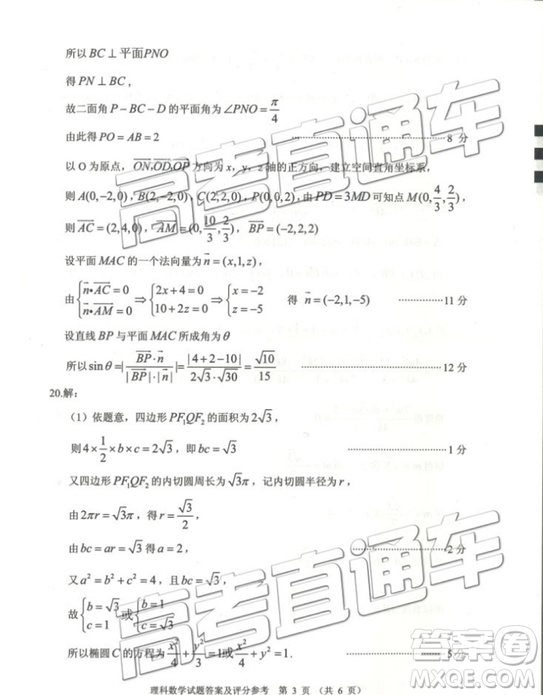 所以 BC ⊥ 平面PNO
得 PN ⊥ BC，
故二面角 P－BC－D 的平面角为∠PNO = π/4
由此得 PO = AB = 2 ················8 分
以 O 为原点，ON,OD,OP 方向为 x，y，z 轴的正方向，建立空间直角坐标系，
则 A(0,-2,0)，B(2,-2,0)，C(2,2,0)，P(0,0,2)，由 PD = 3MD 可知点 M(0,4/3,2/3)，
则 AC = (2,4,0)，AM = (0,10/3,2/3)，BP = (-2,2,2)
设平面 MAC 的一个法向量为 n = (x,1,z)，
由 {n•AC = 0 n•AM = 0 ⇒ {2x+4=0 10+2z=0 ⇒ {x=-2 z=-5 得 n = (-2,1,-5) ················11 分
设直线 BP 与平面 MAC 所成角为 θ
所以 sinθ = |BP·n / |BP|·|n|| = |4+2-10| / 2√3·√30 = √10/15 ················12 分
20.解：
（1）依题意，四边形 PF₁QF₂ 的面积为 2√3，
则 4×1/2×b×c = 2√3，即 bc = √3 ················1 分
又四边形 PF₁QF₂ 的内切圆周长为 √3π，记内切圆半径为 r，
由 2πr = √3π，得 r = √3/2，
由 bc = ar = √3 得 a = 2， ················2 分
又 a² = b² + c² = 4，且 bc = √3，
故 {b=√3 c=1 或 {b=1 c=√3
所以椭圆 C 的方程为 x²/4 + y²/3 = 1 或 x²/4 + y² = 1.
理科数学试题答案及评分参考 第 3 页 （共 6 页）
高考直通车
高考直通车